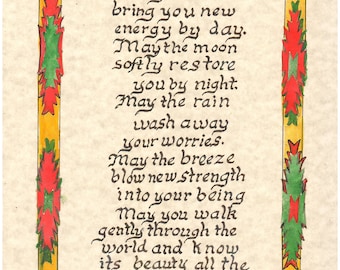 bring you new
energy by day.
May the moon
softly restore
you by night.
May the rain
wash away
your worries.
May the breeze
blow new strength
into your being
May you walk
gently through the
world and know
its beauty all the